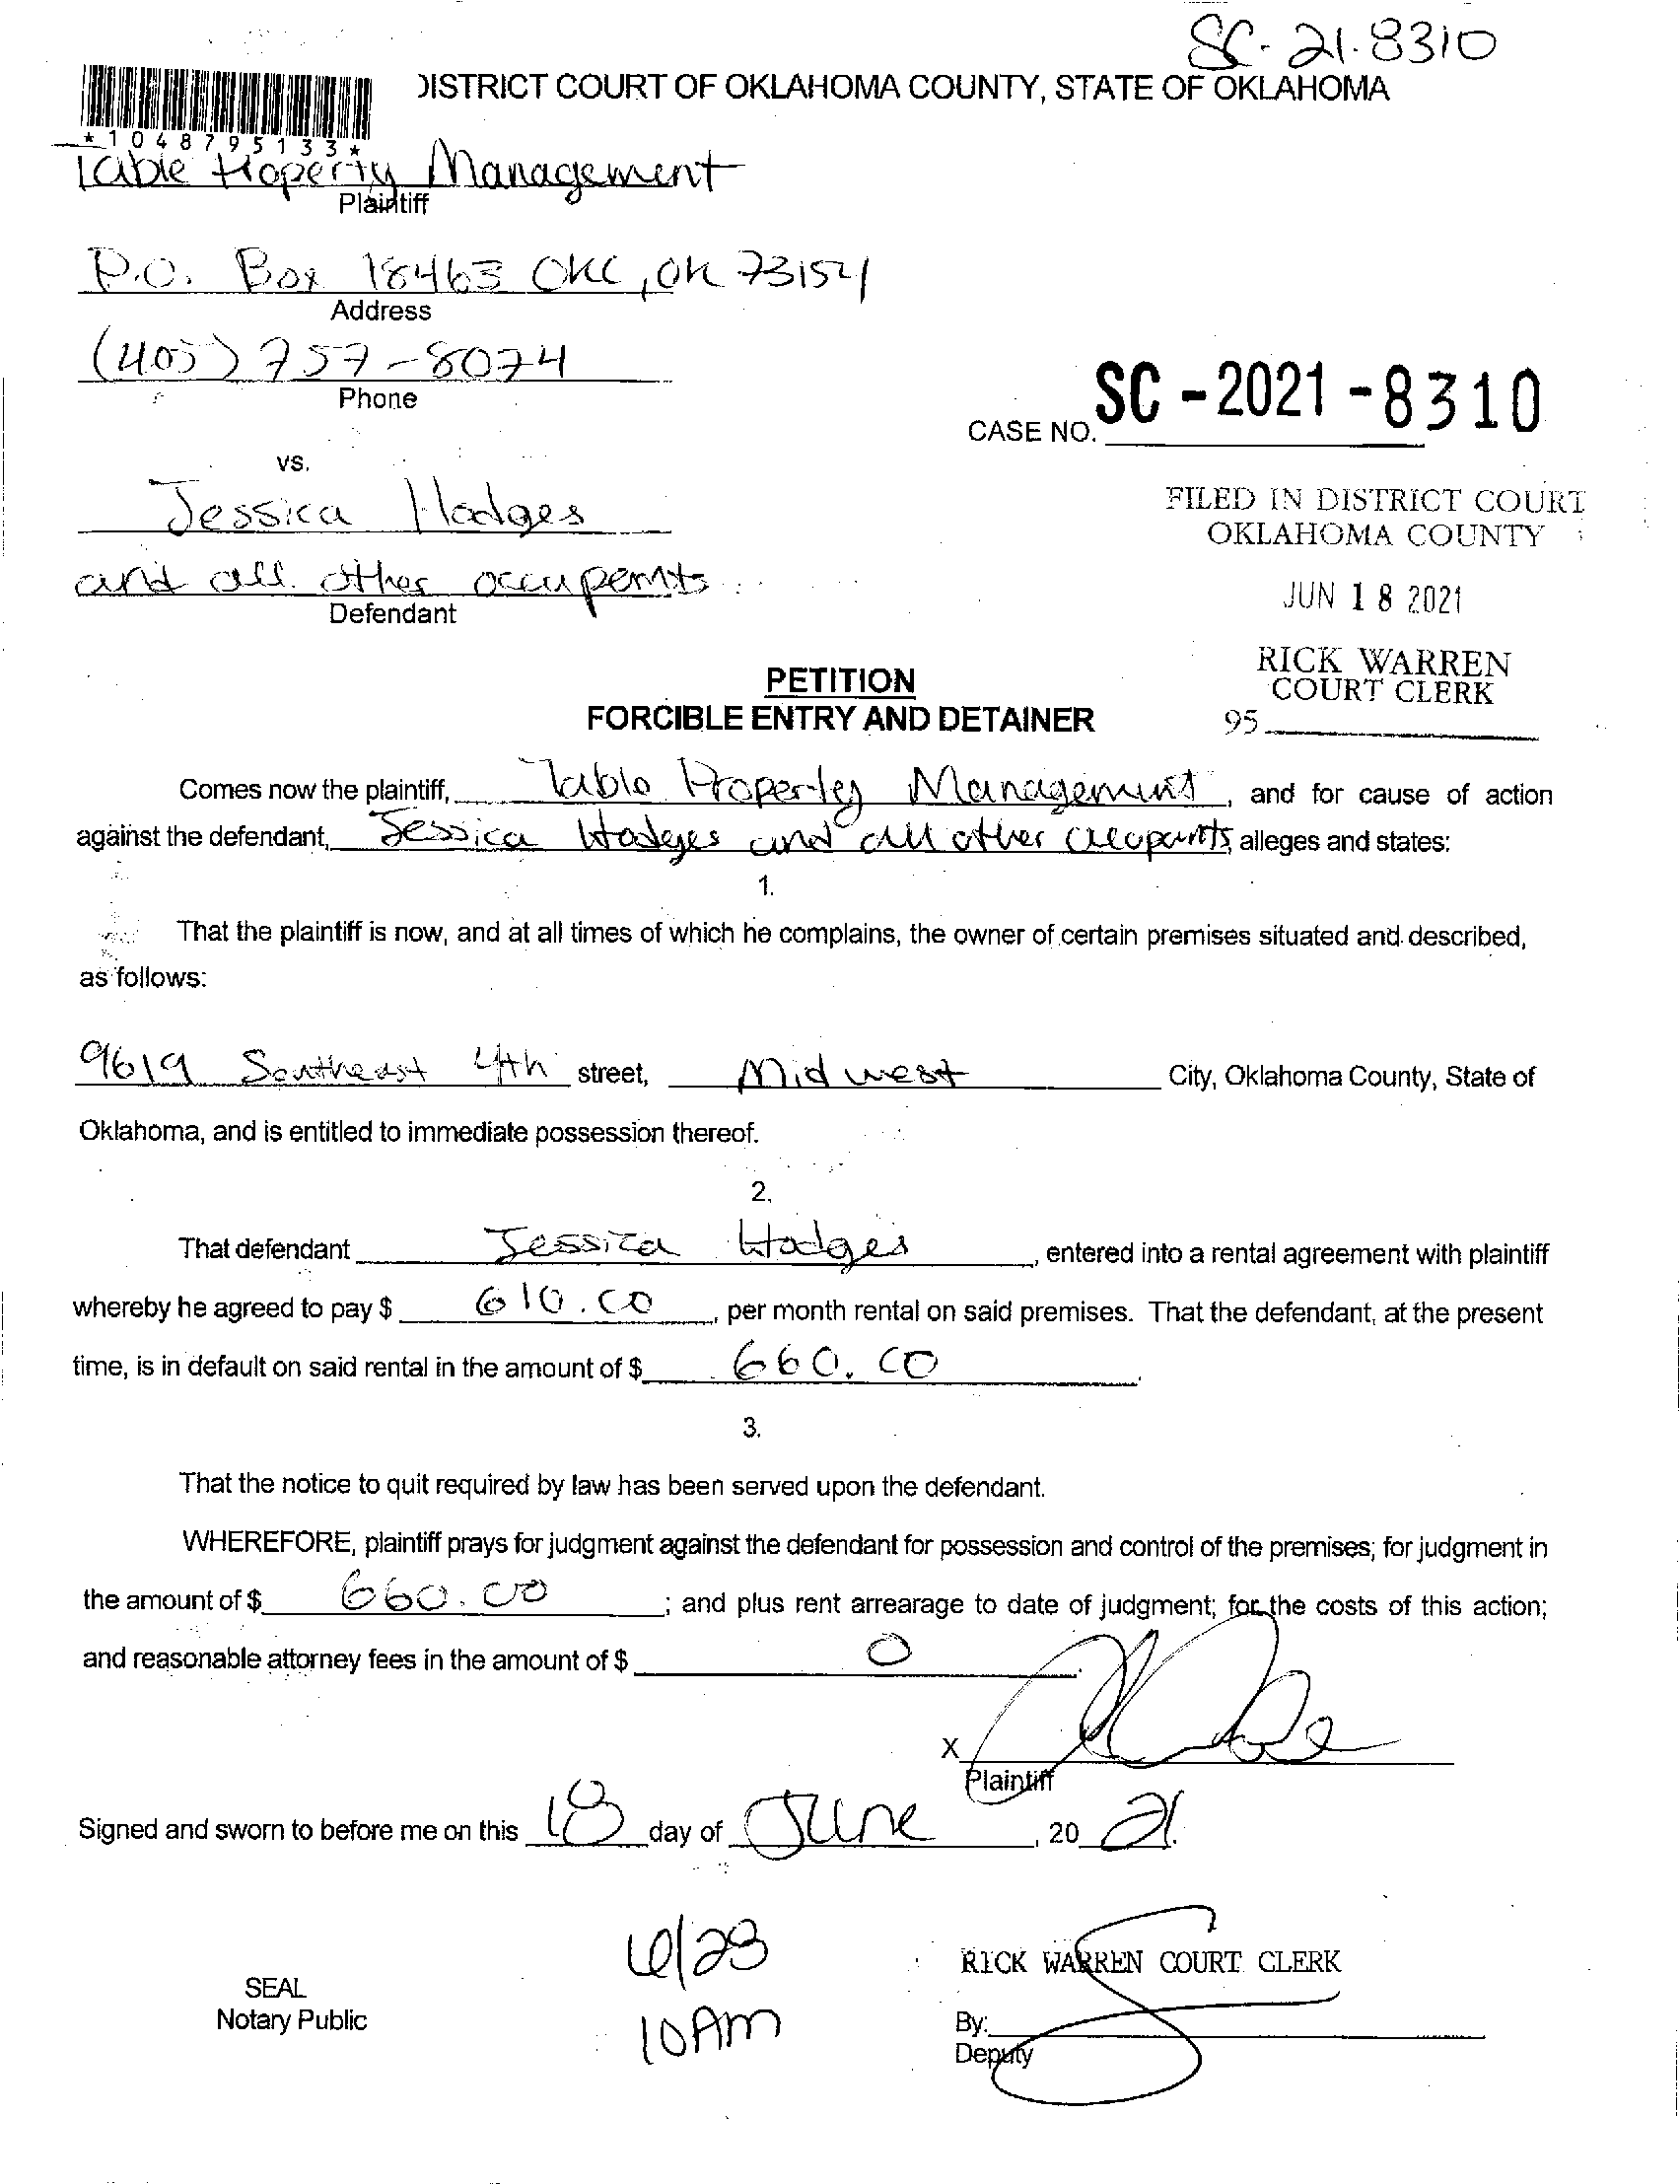 SC-21-8310
DISTRICT COURT OF OKLAHOMA COUNTY, STATE OF OKLAHOMA
*1048795133*
Table Property Management
Plaintiff
P.O. Box 18463 OKC, OK 73154
Address
(405) 757-8074
Phone
SC-2021-8310
CASE NO.
vs.
Jessica Hodges
FILED IN DISTRICT COURT
OKLAHOMA COUNTY
and all other occupents
Defendant
JUN 18 2021
RICK WARREN
COURT CLERK
95
PETITION
FORCIBLE ENTRY AND DETAINER
Comes now the plaintiff, Table Property Management, and for cause of action
against the defendant, Jessica Hodges and all other alleges and states:
1.
That the plaintiff is now, and at all times of which he complains, the owner of certain premises situated and described,
as follows:
9619 Southeast 4th street, Midwest City, Oklahoma County, State of
Oklahoma, and is entitled to immediate possession thereof.
2.
That defendant Jessica Hodges, entered into a rental agreement with plaintiff
whereby he agreed to pay $ 610.00, per month rental on said premises. That the defendant, at the present
time, is in default on said rental in the amount of $ 660.00.
3.
That the notice to quit required by law has been served upon the defendant.
WHEREFORE, plaintiff prays for judgment against the defendant for possession and control of the premises; for judgment in
the amount of $ 660.00; and plus rent arrearage to date of judgment; for the costs of this action;
and reasonable attorney fees in the amount of $ 0.
X
Plaintiff
Signed and sworn to before me on this 18 day of June, 20 21.
6/28
10AM
SEAL
Notary Public
RICK WARREN COURT CLERK
By:
Deputy